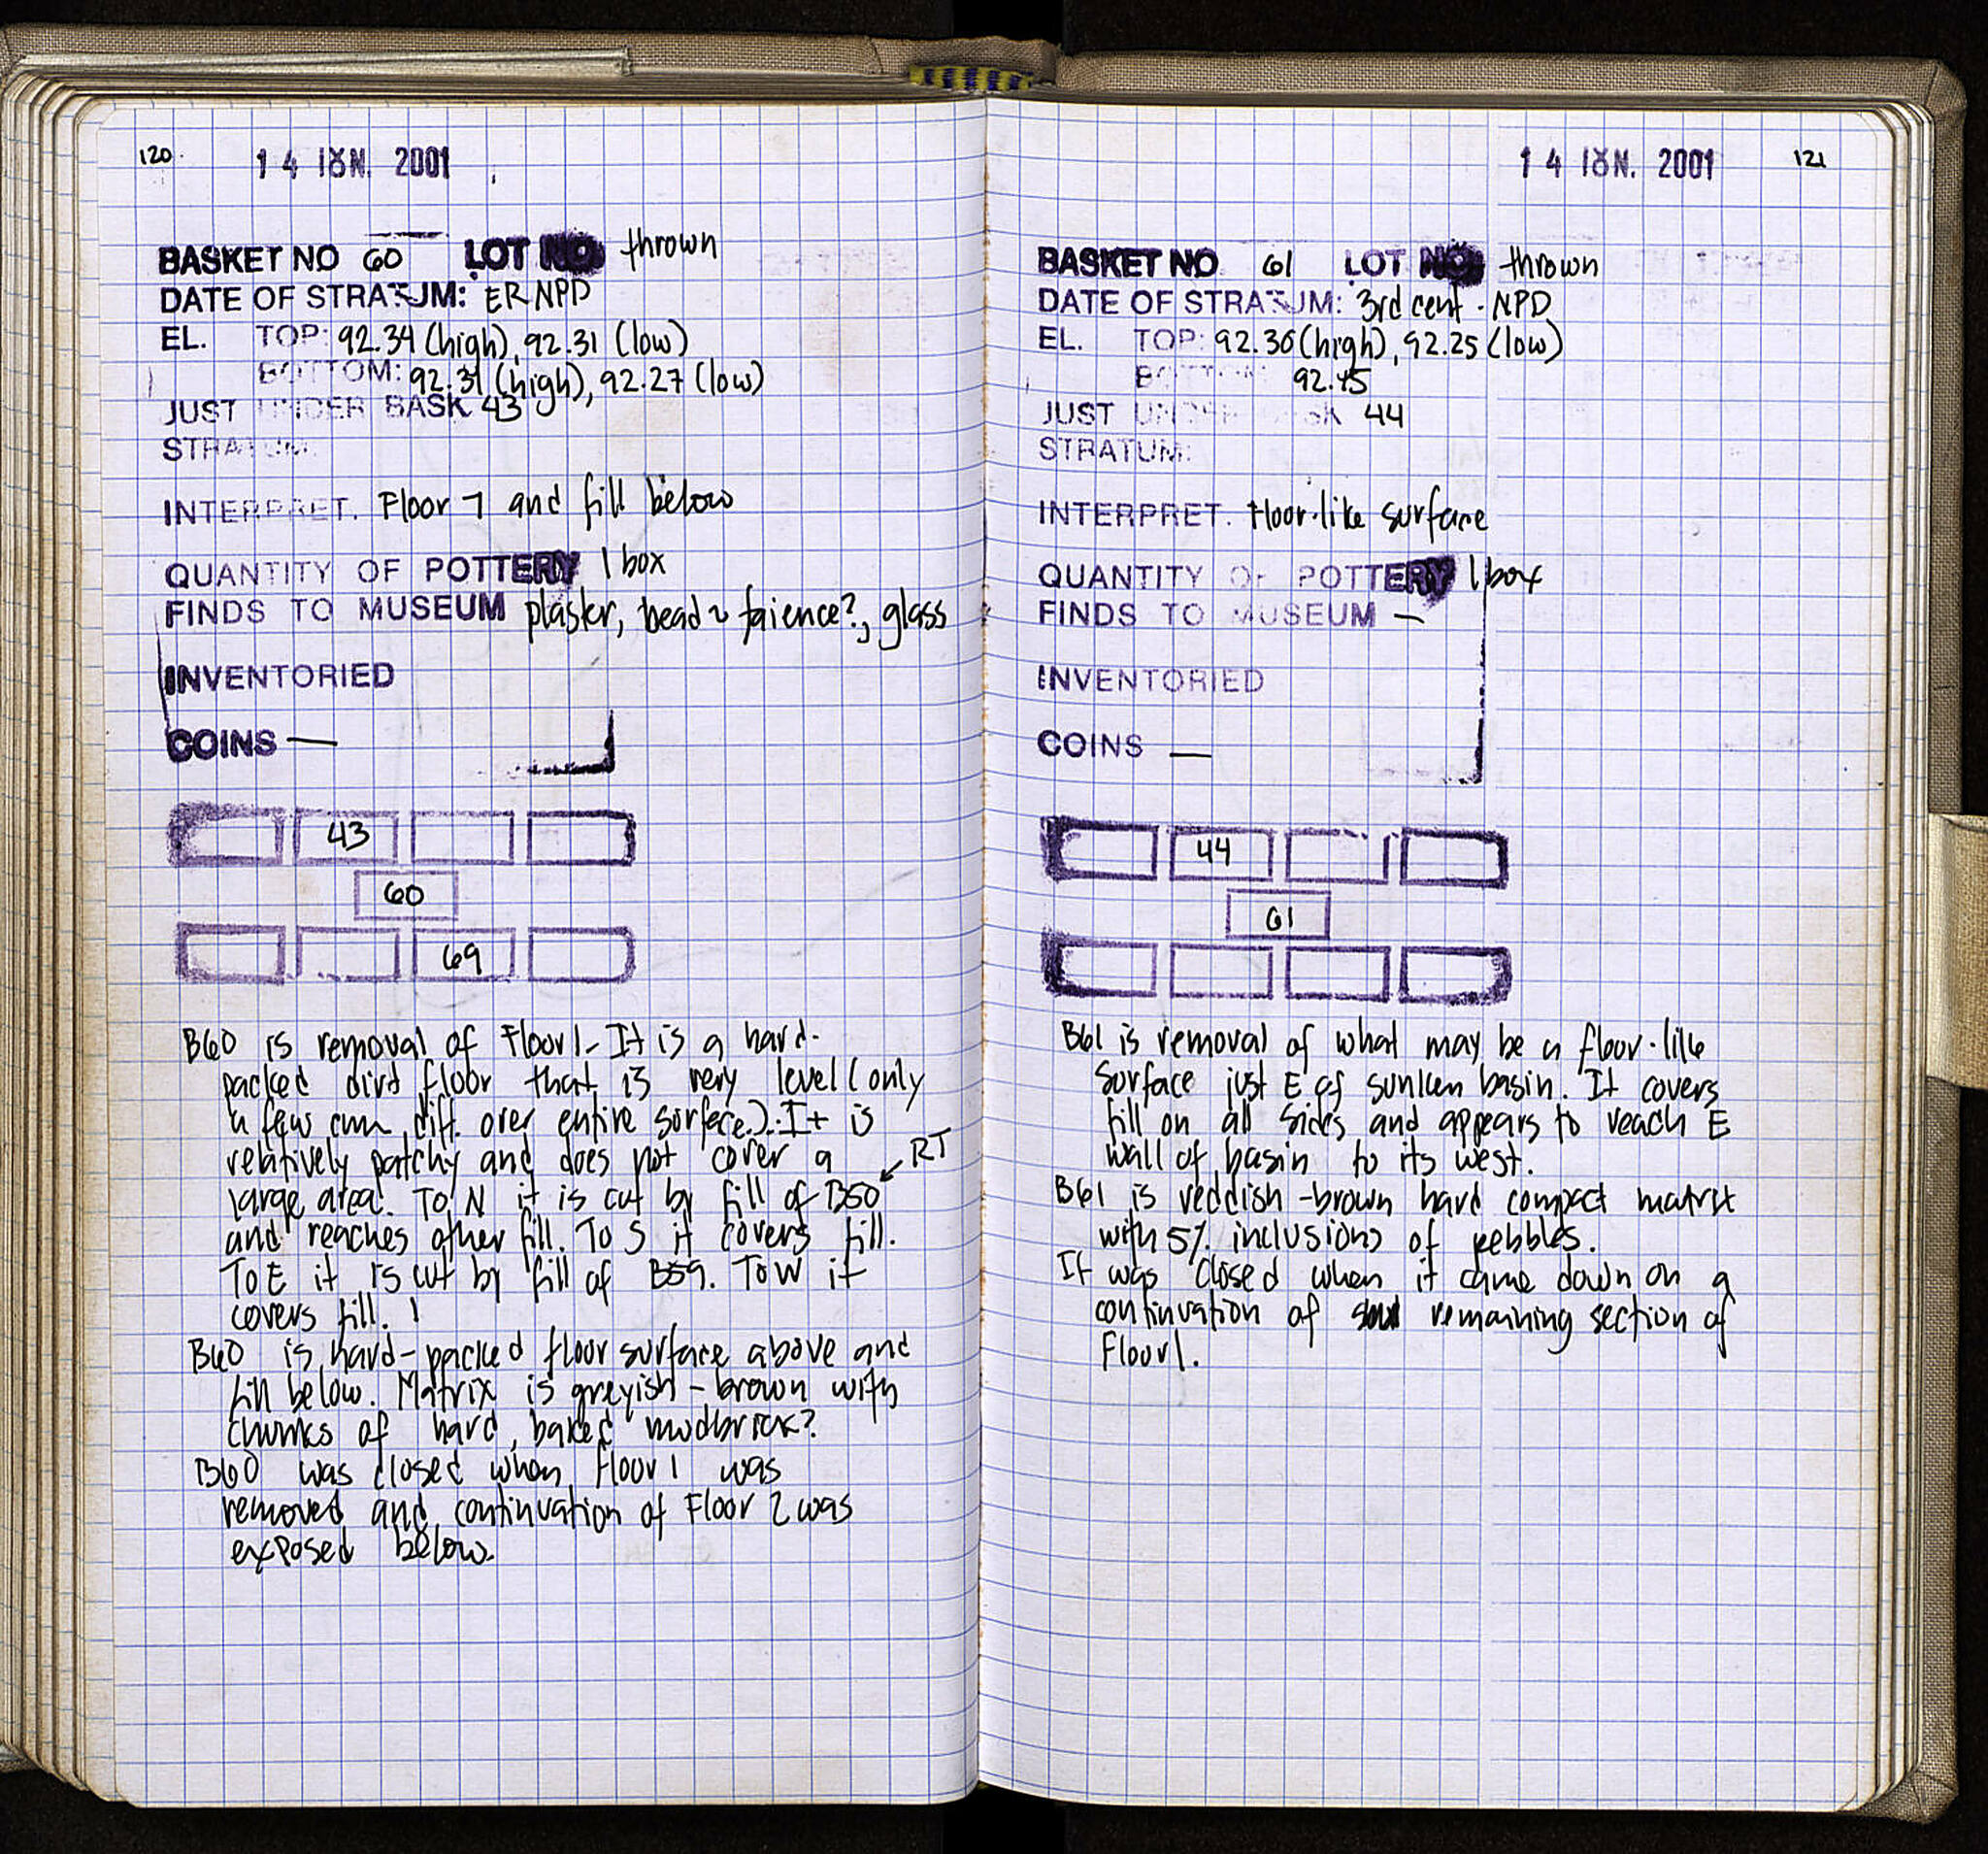 120
14 ΙȢΝ. 2001
BASKET NO 60 LOT NO thrown
DATE OF STRATUM: ER NPD
EL. TOP: 92.34 (high), 92.31 (low)
BOTTOM: 92.31 (high), 92.27 (low)
JUST UNDER BASK 43
STRATUM:
INTERPRET. Floor 1 and fill below
QUANTITY OF POTTERY 1 box
FINDS TO MUSEUM plaster, bead ~ faience?, glass
INVENTORIED
COINS —
43
60
69
B60 is removal of Floor 1. It is a hard-
packed dirt floor that is very level (only
a few cm diff. over entire surface). It is
relatively patchy and does not cover a
RT
large area. To N it is cut by fill of B50
and reaches other fill. To S it covers fill.
To E it is cut by fill of B59. To W it
covers fill.
B60 is hard-packed floor surface above and
fill below. Matrix is greyish-brown with
chunks of hard, baked mudbrick?
B60 was closed when Floor 1 was
removed and continuation of Floor 2 was
exposed below.
14 ΙȢΝ. 2001
121
BASKET NO 61 LOT NO thrown
DATE OF STRATUM: 3rd cent. NPD
EL. TOP: 92.36 (high), 92.25 (low)
BOTTOM:
JUST UNDER BASK 44
STRATUM:
INTERPRET. Floor-like surface
QUANTITY OF POTTERY 1 box
FINDS TO MUSEUM —
INVENTORIED
COINS —
44
61
B61 is removal of what may be a floor-like
surface just E of sunken basin. It covers
fill on all sides and appears to reach E
wall of basin to its west.
B61 is reddish-brown hard compact matrix
with 5% inclusions of pebbles.
It was closed when it came down on a
continuation of remaining section of
Floor 1.